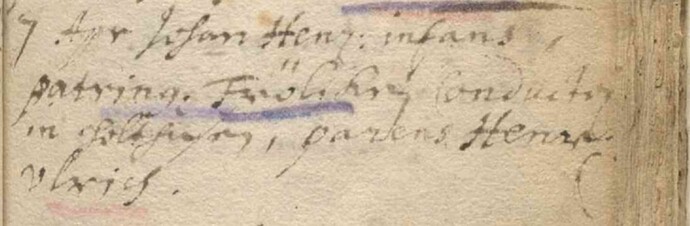 7 Apr Johan Henr: infans,
patring. Frölich, Conducty
in Holthusen, parens Henr.
Vlrich.